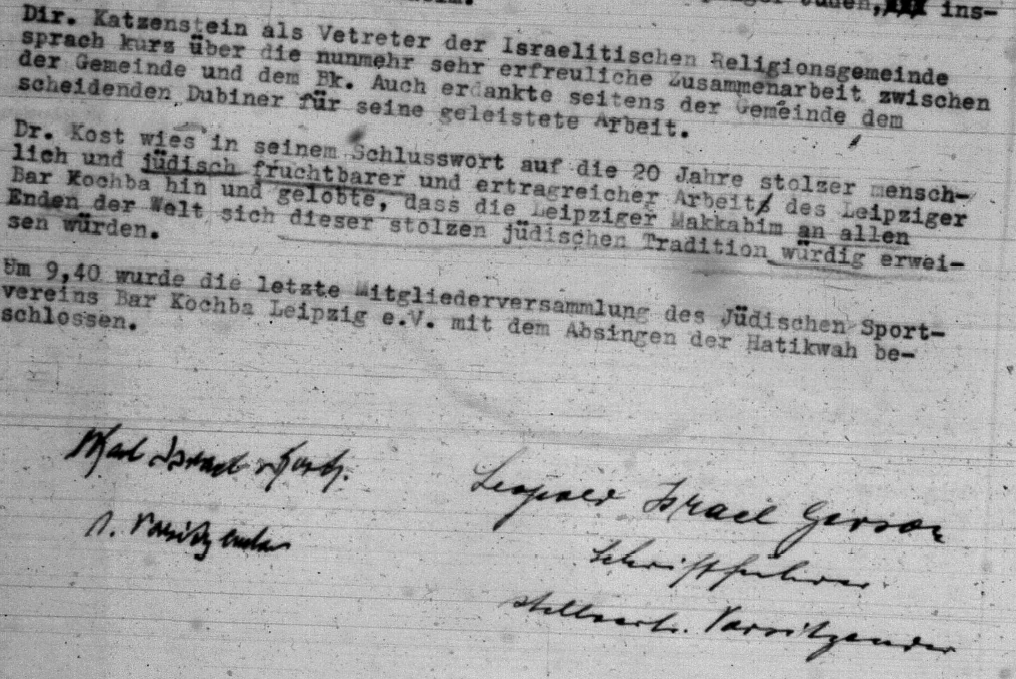 Juden, xxx ins-
Dir. Katzenstein als Vetreter der Israelitischen Religionsgemeinde
sprach kurz über die nunmehr sehr erfreuliche Zusammenarbeit zwischen
der Gemeinde und dem Bk. Auch erdankte seitens der Gemeinde dem
scheidenden Dubiner für seine geleistete Arbeit.
Dr. Kost wies in seinem Schlusswort auf die 20 Jahre stolzer mensch-
lich und jüdisch fruchtbarer und ertragreicher Arbeit des Leipziger
Bar Kochba hin und gelobte, dass die Leipziger Makkabim an allen
Enden der Welt sich dieser stolzen jüdischen Tradition würdig erwei-
sen würden.
Um 9,40 wurde die letzte Mitgliederversammlung des Jüdischen Sport-
vereins Bar Kochba Leipzig e.V. mit dem Absingen der Hatikwah be-
schlossen.
Israel Kost.
1. Vorsitzender
Leopold Israel Gerson
Schriftführer
stellvertr. Vorsitzender